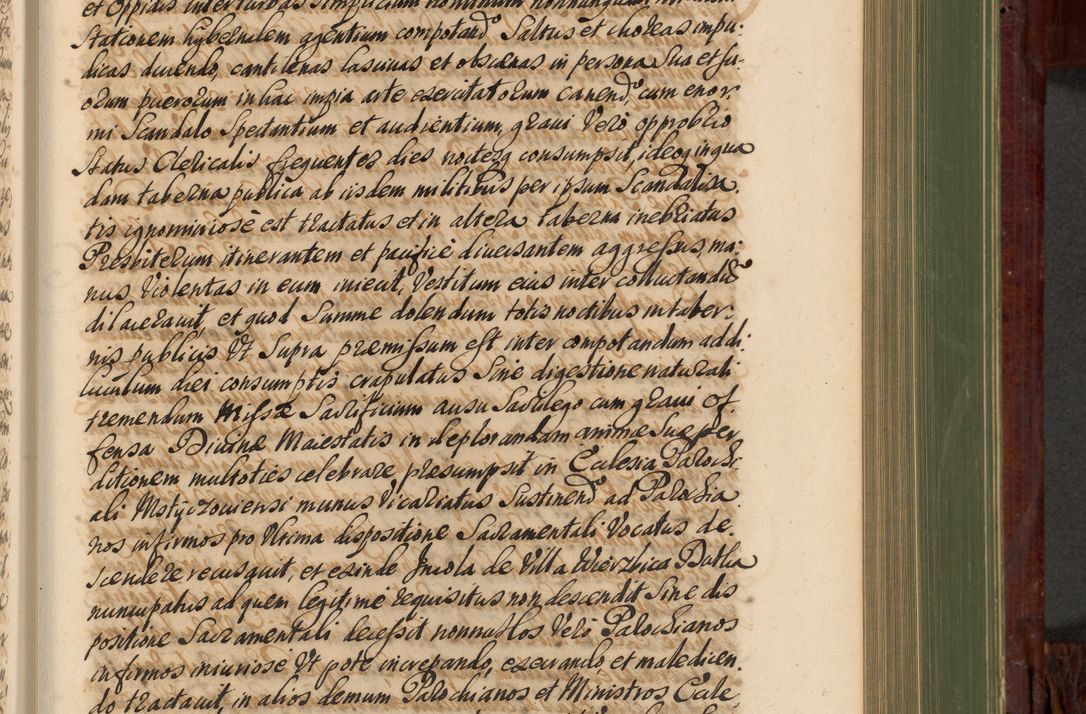 et Oppidis
Stationem hybernalem agentium compotand(o) Saltus et choreas impu-
dicas ducendo, cantilenas lasciuas et obscænas in persona Sua et su-
orum puerorum in hac impia arte exercitatorum canend(o), cum enor,
mi Scandalo Spectantium et audientium, graui Verò opprobrio
Status Clericalis frequenter dies noctesq consumpsit, ideoq in qua
dam taberna publica ab iisdem militibus per ipsum Scandaliza,
tis ignominiosè est tractatus et in altera taberna inebriatus
Presbiterum itinerantem et pacificè diuersantem aggressus, ma,
nus Violentas in eum iniecit, Vestitum eius inter colluctandũ
dilacerauit, et quod Summe dolendum totis noctibus in taber-
nis publicis Vt Supra præmissum est inter compotandum ad di,
luculum diei consumptis crapulatus Sine digestione naturali
tremendum Missæ Sacrificium ausu Sacrilego cum graui of,
fensa Diuinæ Maiestatis in deplorandam animæ Suæ per
ditionem multoties celebrare, præsumpsit in Ecclesia Parochi
ali Mstyczowiensi munus Vicariatus Sustinend(o) ad Parochia
nos infirmos pro Vltima dispositione Sacramentali Vocatus de,
scendere recusauit, et exinde Incola de Villa Wierzbica Dutka
nuncupatus ad quem legitimè requisitus non descendit Sine dis
positione Sacramentali decessit nonnullos Verò Parochianos
infirmos iniuriosè Vt pote increpando, execrando et maledicen,
do tractauit, in alios demum Parochianos et Ministros Eccle,